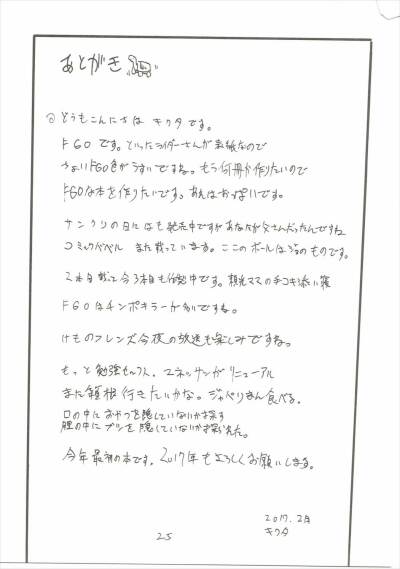 あとがき
どうもこんにちは キクタです。
FGOです。といったらライダーさんが表紙なので
ちょいFGO色がうすいですね。もう何冊か作りたいので
FGOな本を作りたいです。あえはおっぱいです。
サンクリの日にはも発売中ですがあなたが父さんだったんですね
コミックバベル また載っています。ここのボールは のものです。
2本目載って今3本目も作製中です。頼光ママの手コキ添い寝
FGOはチンポキラーが多いですね。
けものフレンズ今夜の放送も楽しみですね。
もっと勉強せんと、 ユネッサンがリニューアル
また箱根行きたいかな。ジャパリまん食べる。
口の中におやつを隠していないか探す
膣の中にブツを隠していないか探られた。
今年最初の本です。2017年もよろしくお願いします。
2017.2月
キクタ
25